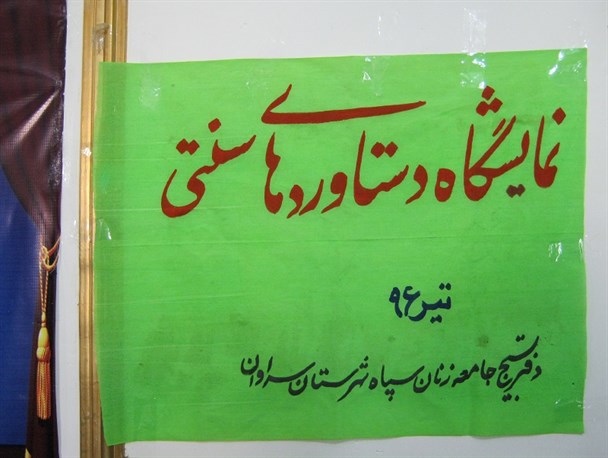 نمایشگاه دستاوردهای سنتی
تیر ۹۶
دفتر بسیج جامعه زنان سپاه شهرستان سراوان